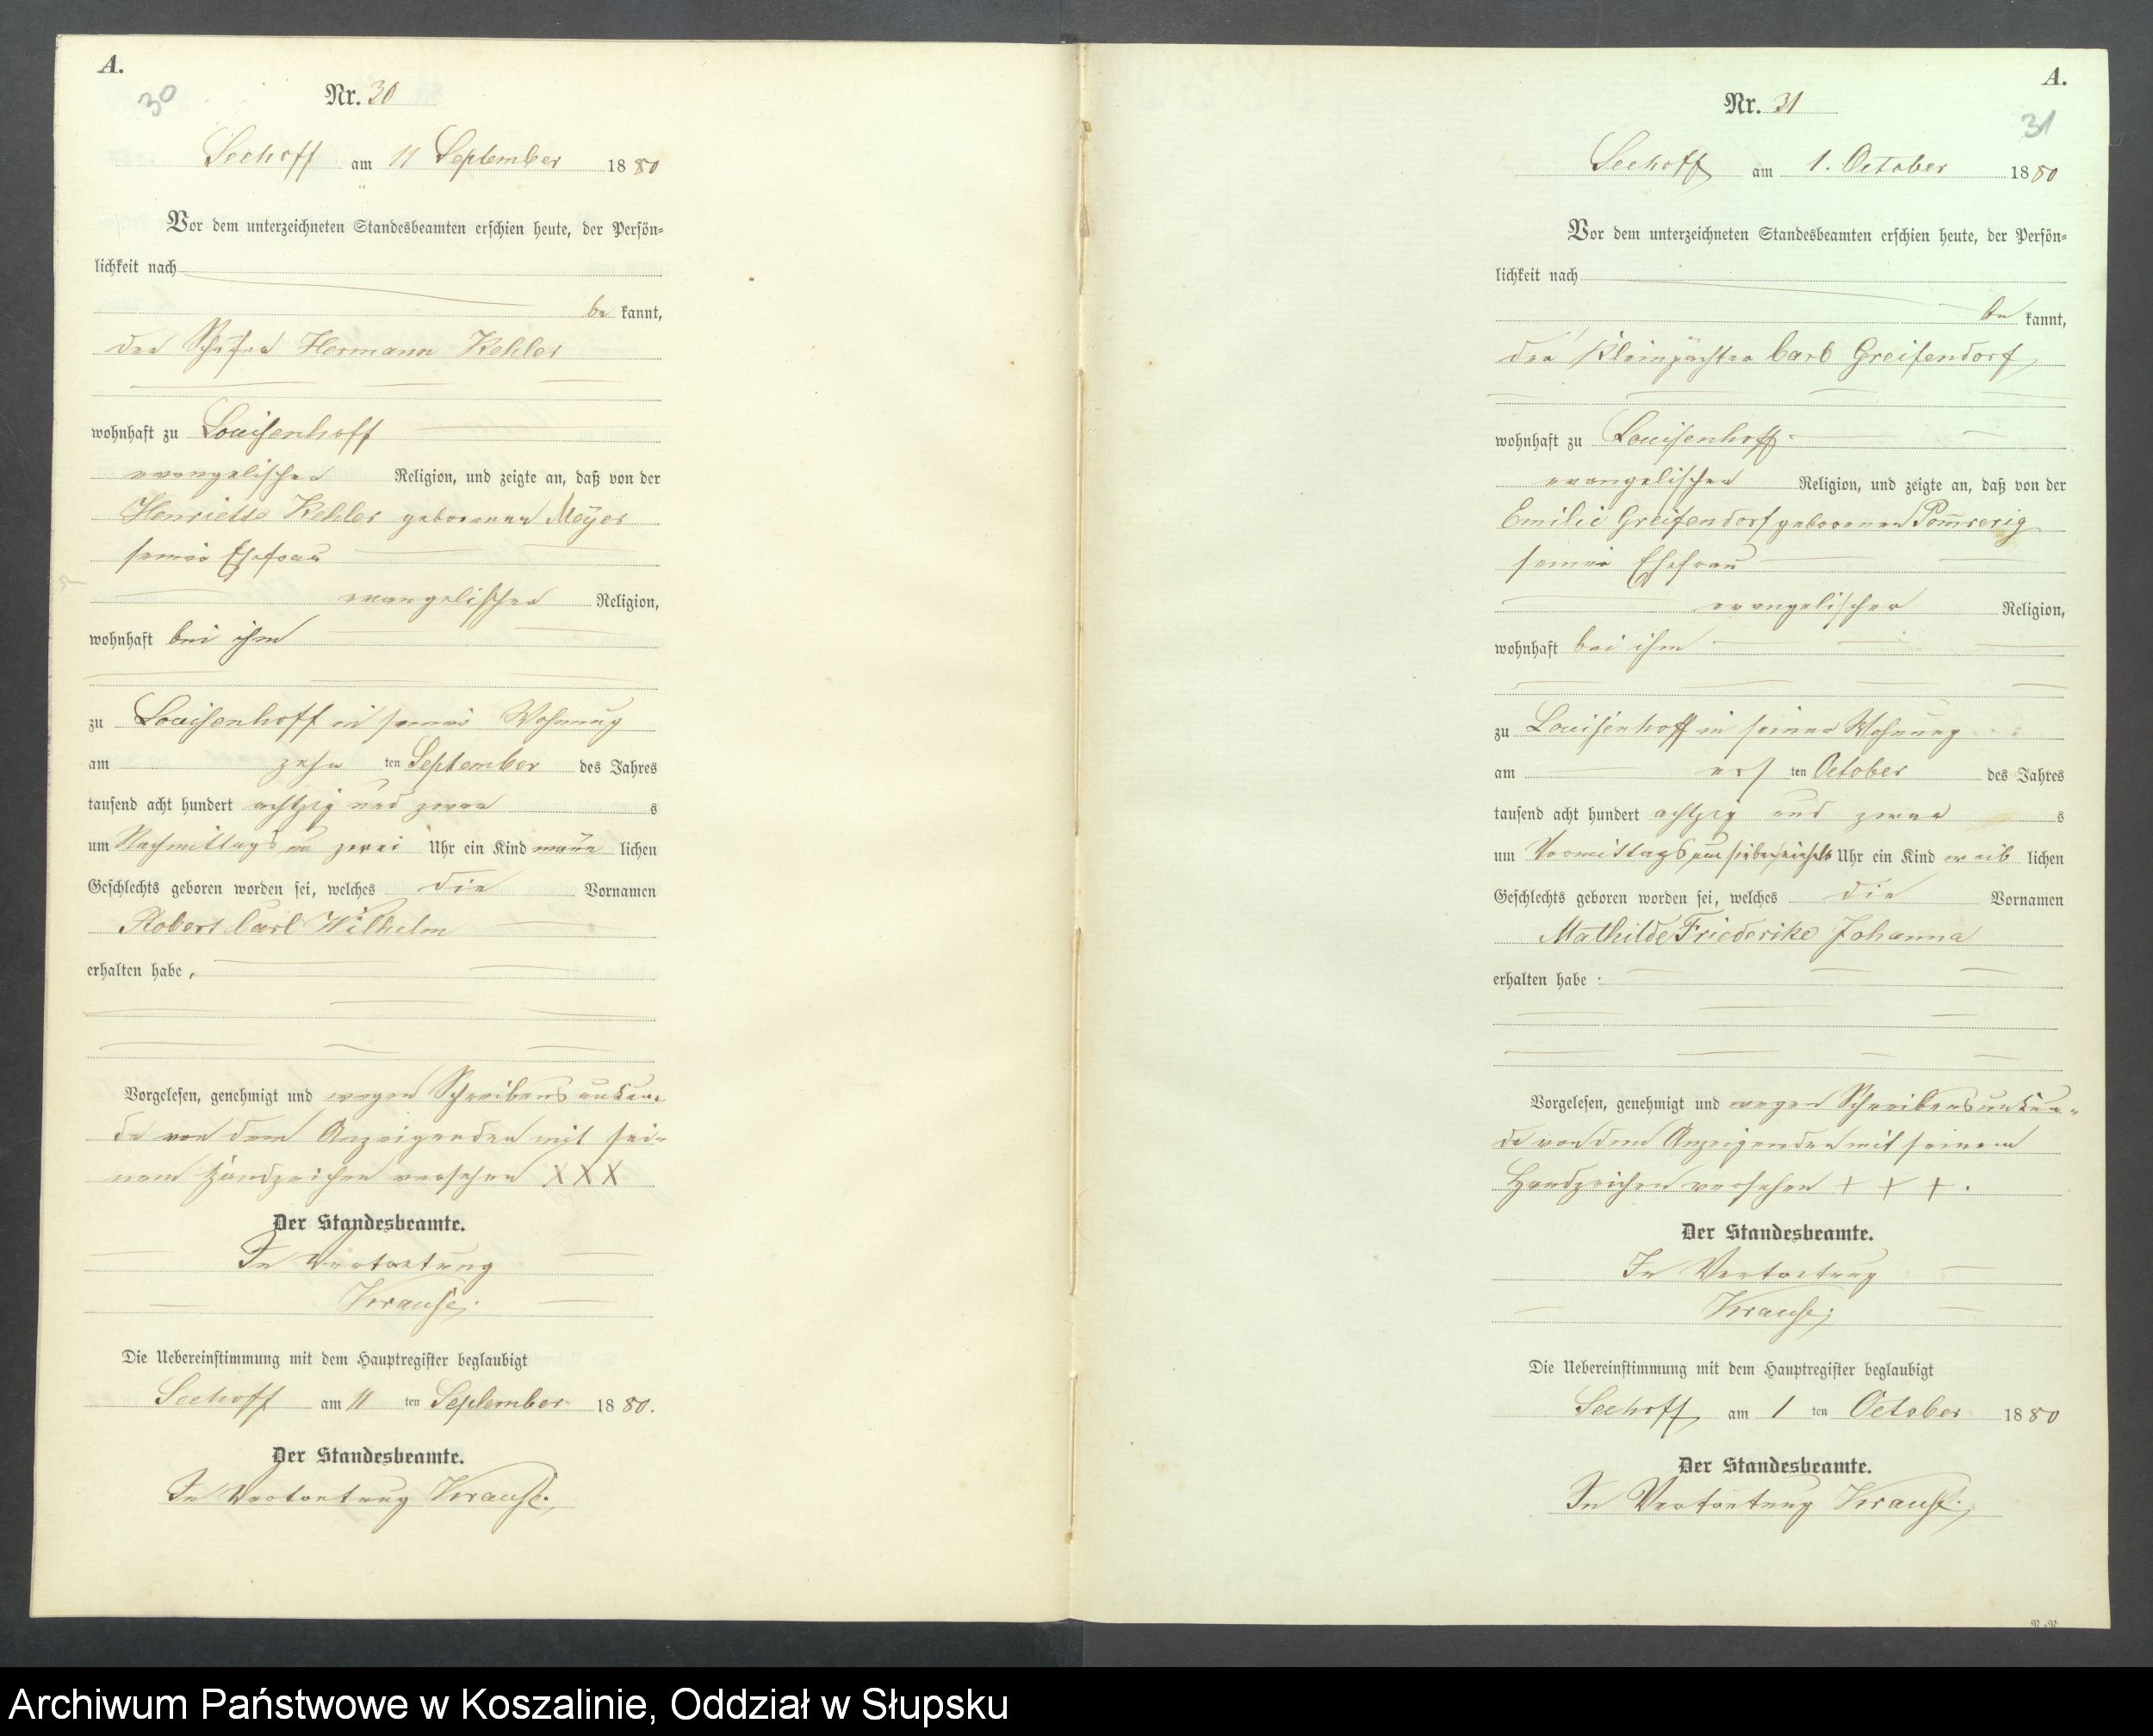 A.
30
Nr. 30
Seehoff am 11 September 1880
Vor dem unterzeichneten Standesbeamten erschien heute, der Persön=
lichkeit nach
be kannt,
der Schäfer Hermann Kehler
wohnhaft zu Louisenhoff
evangelischer Religion, und zeigte an, daß von der
Henriette Kehler geborenen Meyer
seiner Ehefrau
evangelischer Religion,
wohnhaft bei ihm
zu Louisenhoff in seiner Wohnung
am zehn ten September des Jahres
tausend acht hundert achtzig und zwar s
um Nachmittags um zwei Uhr ein Kind männ lichen
Geschlechts geboren worden sei, welches die Vornamen
Robert Carl Wilhelm
erhalten habe,
Vorgelesen, genehmigt und wegen Schreibensunkun=
de von dem Anzeigenden mit sei=
nem Handzeichen versehen XXX
Der Standesbeamte.
In Vertretung
Krause.
Die Uebereinstimmung mit dem Hauptregister beglaubigt
Seehoff am 11 ten September 1880.
Der Standesbeamte.
In Vertretung Krause.
A.
31
Nr. 31
Seehoff am 1. October 1880
Vor dem unterzeichneten Standesbeamten erschien heute, der Persön=
lichkeit nach
be kannt,
der Kleinpächter Carl Greifendorf
wohnhaft zu Louisenhoff
evangelischer Religion, und zeigte an, daß von der
Emilie Greifendorf geborenen Pom̅rerig
seiner Ehefrau
evangelischer Religion,
wohnhaft bei ihm
zu Louisenhoff in seiner Wohnung
am ers ten October des Jahres
tausend acht hundert achtzig und zwar s
um Vormittags um sieben Uhr ein Kind weib lichen
Geschlechts geboren worden sei, welches die Vornamen
Mathilde Friederike Johanna
erhalten habe :
Vorgelesen, genehmigt und wegen Schreibensunkun=
de von dem Anzeigenden mit seinem
Handzeichen versehen + + +.
Der Standesbeamte.
In Vertretung
Krause.
Die Uebereinstimmung mit dem Hauptregister beglaubigt
Seehoff am 1 ten October 1880
Der Standesbeamte.
In Vertretung Krause.
Archiwum Państwowe w Koszalinie, Oddział w Słupsku